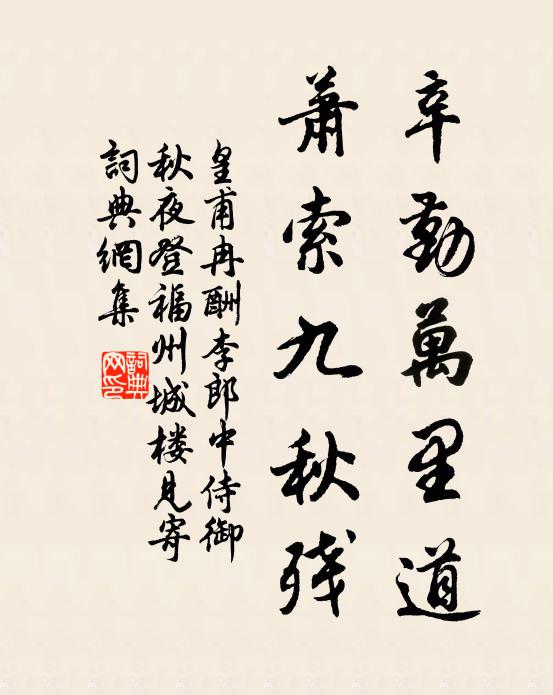 辛勤萬里道
蕭索九秋残
皇甫冉酬李郎中侍御
秋夜登福州城楼見寄
詞典網集
詞典
网印